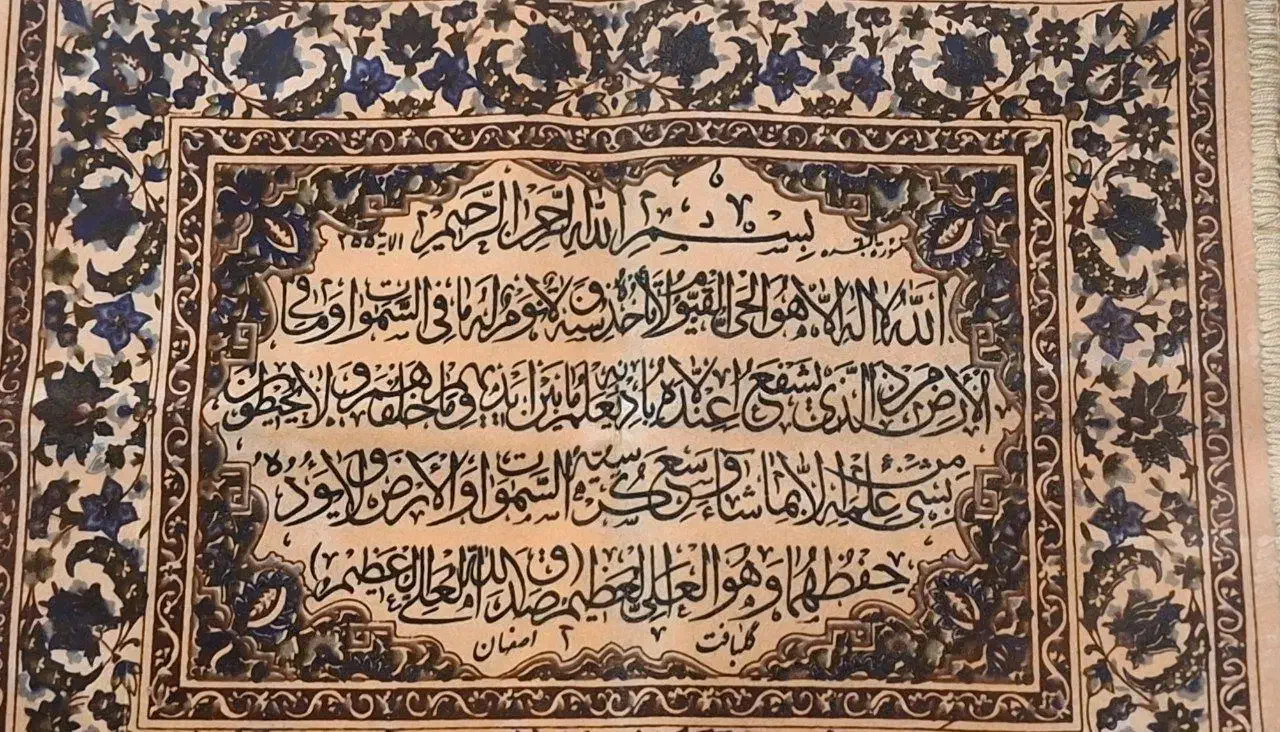 سورة بقره بسم الله الرحمن الرحيم الاية ٢٥٥
الله لا اله الا هو الحي القيوم لا تأخذه سنة ولا نوم له ما في السموات وما في
الارض من ذا الذي يشفع عنده الا باذنه يعلم ما بين ايديهم وما خلفهم ولا يحيطون
بشيء من علمه الا بما شاء وسع كرسيه السموات والارض ولا يؤده
حفظهما وهو العلي العظيم (صدق الله العلي العظيم)
گلبافت ٢ اصفهان